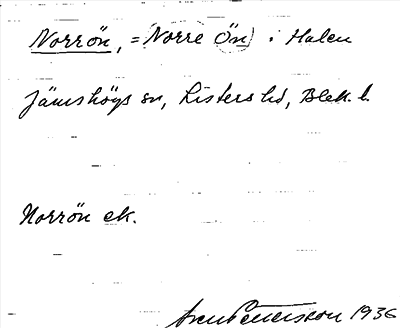 Norrön, = Norre Ön) i Halen
Jämshögs sn, Listers hd, Blek. l.
Norrön ek.
Sven Pettersson 1936